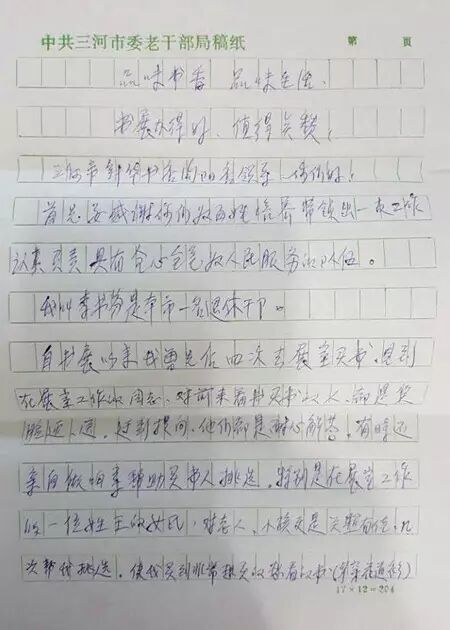 中共三河市委老干部局稿纸 第 页
品味书香 品味生活
书展办得好，值得点赞！
三河市新华书店的领导 你们好！
首先要感谢你们 带领出一支工作
认真负责具有爱心全意为人民服务的队伍。
我叫李书 是本市一名退休干部。
自书展以来我曾先后四次去展室买书，见到
在展室工作的同志，对前来看书买书的人，都是笑
脸迎人，遇到提问，他们都是耐心解答，有时还
亲自 辅助买书人挑选，特别是在展室工作
的一位姓王的女氏，对老人、小孩更是关照有佳，几
次帮我挑选，使我买到非常想买的 书
17×12=204